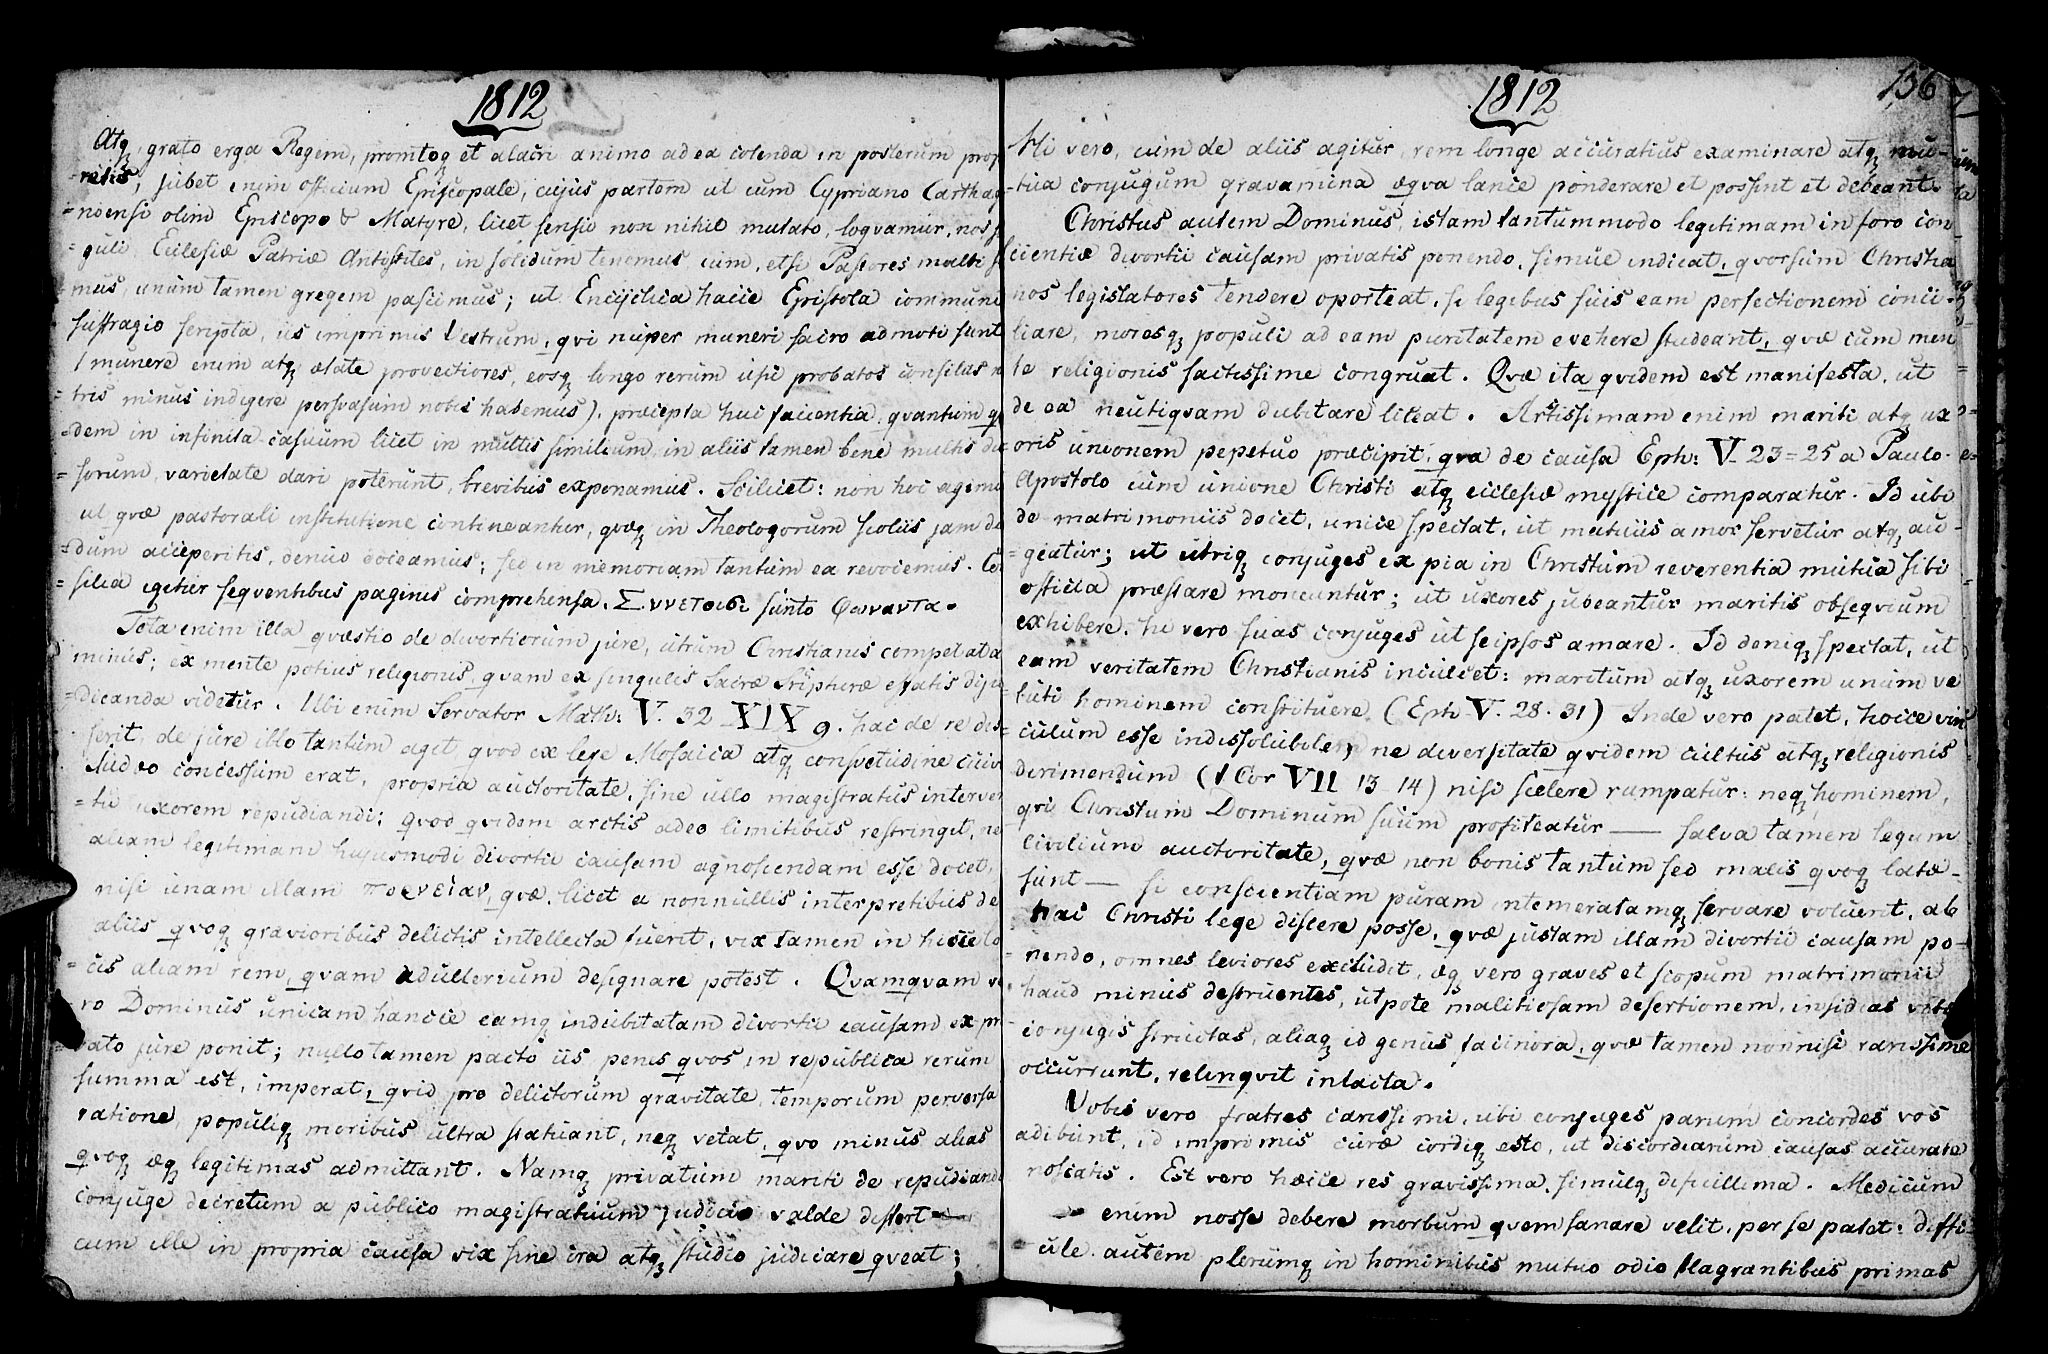 1812
Atq grato erga Regem, promtoq et alacri animo ad ea colenda in posterum prop
-retis; jubet enim officium Episcopale, cujus partem ut cum Cypriano Carthag
=nensi olim Episcopo & Matyre, licet sensu non nihil mutato, loqvamur, nos s
=guli Eclesiæ Patriæ Antistites, in solidum tenemus cum, etsi Pastores multi s
=mus, unum tamen gregem pascimus; ut Encyclica hacce Epistola communi
suffragio scripta, iis imprimis Vestrum, qvi nuper muneri sacro admoti sunt
(munere enim atq ætate provectiores, eosq longo rerum usu probatos consiliis n
=tris minus indigere persvasum nobis habemus). præcepta huc facientia, qvantum qv
=dem in infinita casuum licet in multis similium, in aliis tamen bene multis di
=sorum, varietate dari poterunt, brevibus exponamus. Scilicet: non hoc agimu
ut qvæ pastorali institutione contineantur, qvæq in Theologorum scolis jam du
=dum acceperitis, denuo doceamus; sed in memoriam tantum ea revocemus. Co
=silia igitur seqventibus paginis comprehensa. Συνετοισι sunto Φωναντα.
Tota enim illa qvæstio de divortiorum jure, utrum Christianis competat a
minus; ex mente potius religionis, qvam ex singulis Sacræ Scripturæ effatis diju
=dicanda videtur. Ubi enim Servator Math: V. 32 XIX 9. hac de re dis=
serit, de jure illo tantum agit qvod ex lege Mosaica atq consvetudine cuiv
Judæo concessum erat, propria auctoritate, sine ullo magistratus interven
=tu uxorem repudiandi; qvod qvidem arctis adeo limitibus restringit, ne
aliam legitimam hujusmodi divortii causam agnoscendam esse docet,
nisi unam illam πορνείαν, qvæ, licet a nonnullis interpretibus de
aliis qvoq gravioribus delictis intellecta fuerit, vix tamen in hisce lo
=cis aliam rem, qvam adulterium designare potest. Qvamqvam ve
ro Dominus unicam hancce eamq indubitatam divortii causam ex pri
=vato jure ponit; nullo tamen pacto iis, penes qvos in republica rerum
summa est, imperat, qvid pro delictorum gravitate, temporum perversa
ratione, populiq moribus ultra statuant, neq vetat, qvo minus alias
qvoq æq legitimas admittant. Namq privatum mariti de repudiand
conjuge decretum a publico magistratuum judicio valde differt —
cum ille in propria causa vix sine ira atq studio judicare qveat;
1812
136
Hi vero, cum de aliis agitur, rem longe accuratius examinare atq mu-
-tua conjugum gravamina æqva lance ponderare et possint et debeant.
Christus autem Dominus, istam tantummodo legitimam in foro con-
scientiæ divortii causam privatis ponendo, simul indicat, qvorsum Christia
nos legislatores tendere oporteat, si legibus suis eam perfectionem conci-
liare, moresq populi ad eam puritatem evehere studeant, qvæ cum men
te religionis sactissime congruat. Qvæ ita qvidem est manifesta, ut
de ea neutiqvam dubitare liceat. Artissimam enim mariti atq ux
oris unionem pepetuo præcipit, qva de causa Eph: V. 23=25 a Paulo
Apostolo cum unione Christi atq ecclesiæ mystice comparatur. Id ubi
de matrimoniis docet, unice spectat, ut mutuus amor servetur atq au-
=geatur; ut utriq conjuges ex pia in Christum reverentia mutua sibi
officia præstare moneantur; ut uxores jubeantur maritis obseqvium
exhibere, hi vero suas conjuges ut seipsos amare. Id deniq spectat, ut
eam veritatem Christianis inculcet: maritum atq uxorem unum ve
luti hominem constituere (Eph V. 28. 31) Inde vero patet, hocce vin
culum esse indissolubile, ne diversitate qvidem cultus atq religionis
dirimendum (1 Cor VII 13 14) nisi scelere rumpatur: neq hominem,
qvi Christum Dominum suum profiteatur — salva tamen legum
civilium auctoritate, qvæ non bonis tantum sed malis qvoq latæ
sunt — si conscientiam puram intemeratamq servare voluerit, ab
hac Christi lege discere posse, qvæ justam illam divortii causam po-
nendo, omnes leviores excludit, æq vero graves et scopum matrimonii
haud minus destruentes, utpote malitiosam desertionem, insidias vitæ
conjugis structas, aliaq id genus facinora, qvæ tamen nonnisi rarissime
occurrunt, relinqvit intacta.
Vobis vero fratres carissimi, ubi conjuges parum concordes vos
adibunt, id imprimis curæ cordiq esto, ut discordiarum causas accurate
noscatis. Est vero hæcce res gravissima, simulq dificillima. Medicum
enim nosse debere morbum qvem sanare velit, per se patet: diffi-
cule autem plerumq in hominibus mutuo odio flagrantibus primas